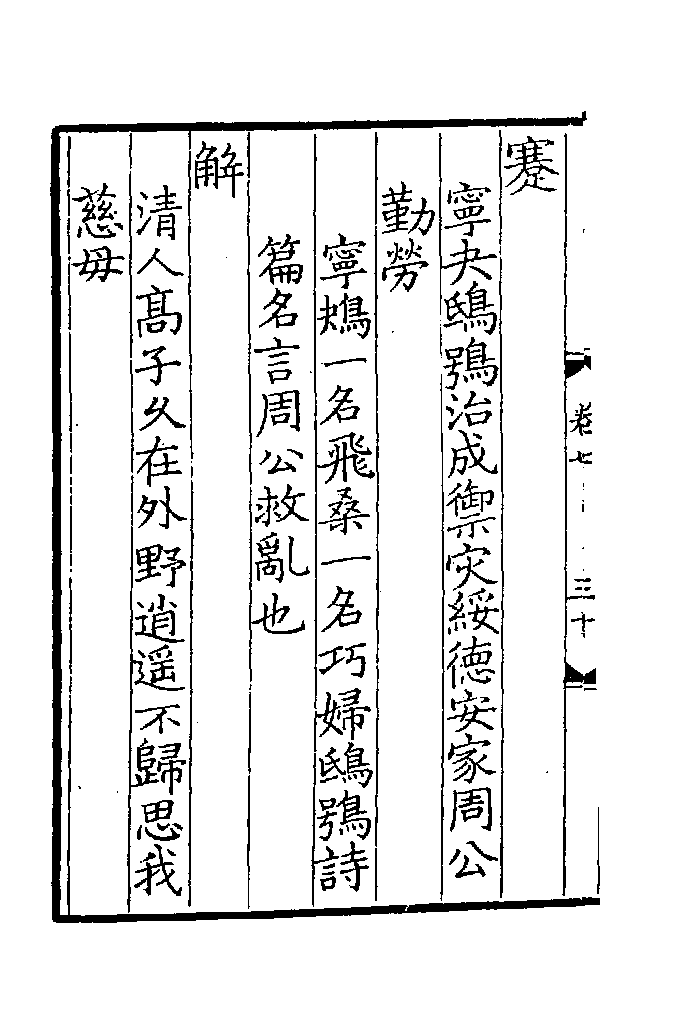 蹇
寧夬鴟鴞治成禦灾綏德安家周公
勤勞
寧鴂一名飛桑一名巧婦鴟鴞詩
篇名言周公救亂也
解
清人髙子乆在外野逍遥不歸思我
慈母
卷七
三十